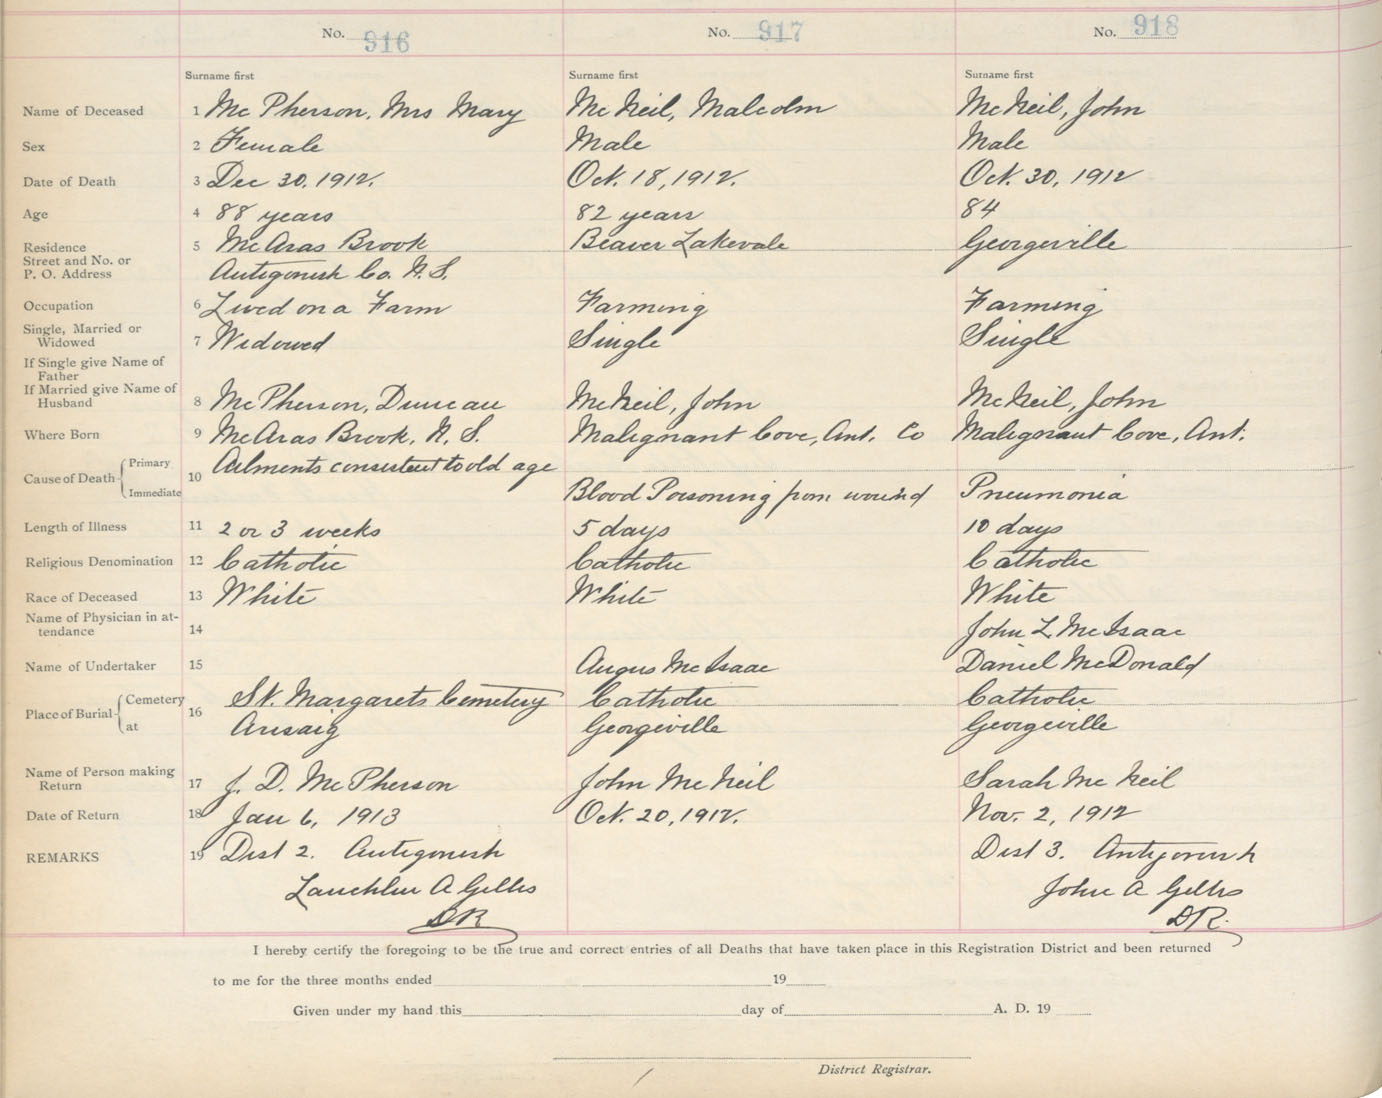 No. 916 No. 917 No. 918
Surname first Surname first Surname first
Name of Deceased 1 McPherson, Mrs Mary McNeil, Malcolm McNeil, John
Sex 2 Female Male Male
Date of Death 3 Dec 30. 1912. Oct. 18, 1912. Oct. 30, 1912
Age 4 88 years 82 years 84
Residence 5 McAras Brook Beaver Lakevale Georgeville
Street and No. or
P. O. Address Antigonish Co. N. S.
Occupation 6 Lived on a Farm Farming Farming
Single, Married or
Widowed 7 Widowed Single Single
If Single give Name of
Father
If Married give Name of
Husband 8 McPherson, Duncan McNeil, John McNeil, John
Where Born 9 McAras Brook, N. S. Malignant Cove, Ant. Co Malignant Cove, Ant.
Cause of Death Primary 10 Ailments consistent to old age
Immediate Blood Poisoning from wound Pneumonia
Length of Illness 11 2 or 3 weeks 5 days 10 days
Religious Denomination 12 Catholic Catholic Catholic
Race of Deceased 13 White White White
Name of Physician in at-
tendance 14 John L McIsaac
Name of Undertaker 15 Angus McIsaac Daniel McDonald
Place of Burial Cemetery 16 St. Margarets Cemetery Catholic Catholic
at Arisaig Georgeville Georgeville
Name of Person making
Return 17 J. D. McPherson John McNeil Sarah McNeil
Date of Return 18 Jan 6, 1913 Oct. 20, 1912. Nov. 2, 1912
REMARKS 19 Dist 2. Antigonish Dist 3. Antigonish
Lauchlin A Gillis John A Gillis
DR DR.
I hereby certify the foregoing to be the true and correct entries of all Deaths that have taken place in this Registration District and been returned
to me for the three months ended 19
Given under my hand this day of A. D. 19
District Registrar.